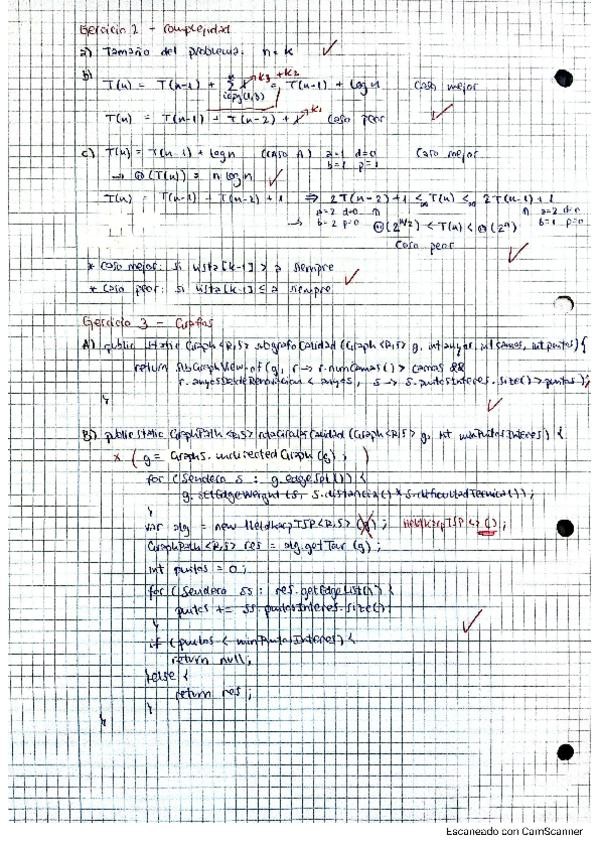 Ejercicio 2 - Complejidad
a) Tamaño del problema: n = k
b)
T(n) = T(n-1) + Σ = T(n-1) + log n caso mejor
T(n) = T(n-1) + T(n-2) + 1 caso peor
c) T(n) = T(n-1) + log n (CASO A) a=1 d=0 b=1 p=1 caso mejor
→ Θ(T(n)) = n log n
T(n) = T(n-1) + T(n-2) + 1 ⇒ 2T(n-2)+1 ≤ T(n) ≤ 2T(n-1)+1
a=2 d=0 b=2 p=0 a=2 d=0 b=1 p=0
→ Θ(2^(n/2)) < T(n) < Θ(2^n)
caso peor
* caso mejor: si lista[k-1] > 2 siempre
* caso peor: si lista[k-1] ≤ 2 siempre
Ejercicio 3 - Grafos
A) public static Graph<R,S> subgrafoCalidad (Graph<R,S> g, int anyos, int camas, int puntos) {
return SubGraphView.of(g, r → r.numCamas() > camas &&
r.anyosDesdeRenovacion < anyos, s → s.puntosInteres.size() > puntos);
}
B) public static GraphPath<R,S> rutaCircularCalidad (Graph<R,S> g, int minPuntosInteres) {
* ( g = Graphs.undirectedGraph (g); )
for (Sendero s : g.edgeSet()) {
g.setEdgeWeight (s, s.distancia() * s.dificultadTecnica());
}
var alg = new HeldKarpTSP<R,S> (g); HeldKarpTSP<>();
GraphPath<R,S> res = alg.getTour (g);
int puntos = 0;
for (Sendero ss : res.getEdgeList()) {
puntos += ss.puntosInteres.size()
}
if (puntos < minPuntosInteres) {
return null;
else {
return res;
}
}
Escaneado con CamScanner